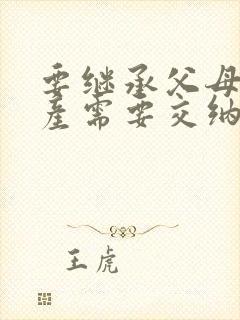 要继承父母
产需要交纳
王虎